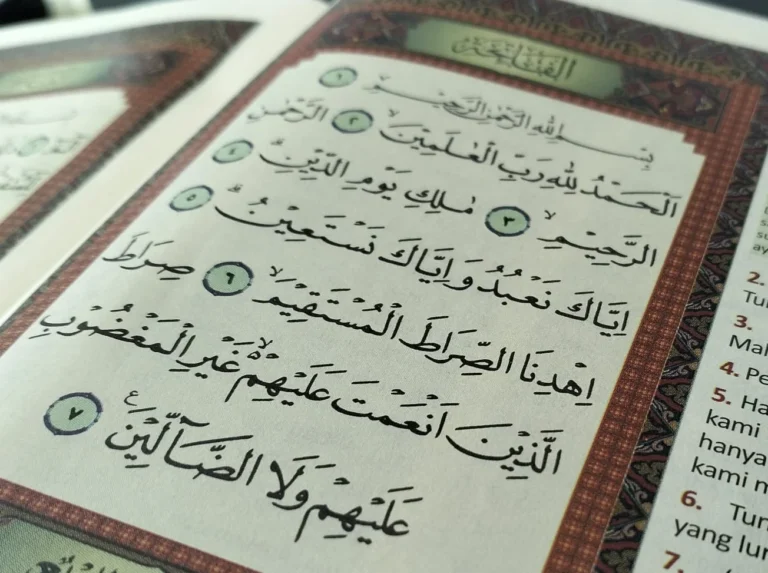 الفاتحة
بِسْمِ اللّٰهِ الرَّحْمٰنِ الرَّحِيْمِ ١
اَلْحَمْدُ لِلّٰهِ رَبِّ الْعٰلَمِيْنَۙ ٢ الرَّحْمٰنِ
الرَّحِيْمِۙ ٣ مٰلِكِ يَوْمِ الدِّيْنِۗ ٤
اِيَّاكَ نَعْبُدُ وَاِيَّاكَ نَسْتَعِيْنُۗ ٥
اِهْدِنَا الصِّرَاطَ الْمُسْتَقِيْمَۙ ٦ صِرَاطَ
الَّذِيْنَ اَنْعَمْتَ عَلَيْهِمْۙ غَيْرِ الْمَغْضُوْبِ
عَلَيْهِمْ وَلَا الضَّاۤلِّيْنَࣖ ٧
2.
3.
4. Pe
5. Ha
kami
hanya
kami m
6. Tun
yang lur
7.